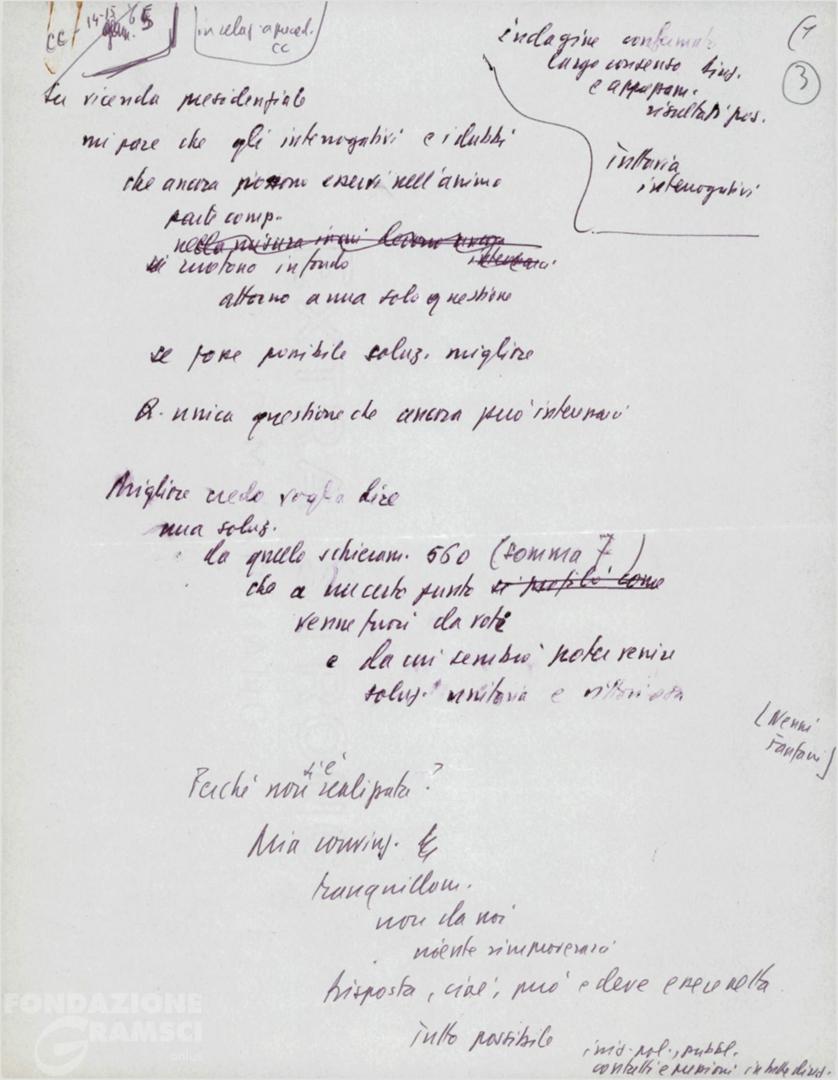 CC - 14-15 gen. 65
in relaz. a preced. CC
(1
3
indagine confermato
largo consenso
e apprezzam.
risultati pos.
tuttavia
interrogativi
Su vicenda presidenziale
mi pare che gli interrogativi e i dubbi
che ancora possono esservi nell'animo
parte comp.
nella misura in cui devono ancora
si ruotano in fondo
attorno a una sola questione
se fosse possibile soluz. migliore
È unica questione che ancora può interessarci
Migliore credo voglia dire
una soluz.
da quello schieram. 560 (somma 7)
che a un certo punto si profilò come
venne fuori da voti
e da cui sembrò poter venire
soluz. unitaria e vittoriosa
[Nenni
Fanfani]
Perché non si è realizzata?
Mia convinz. è
tranquillam.
non da noi
niente rimproverarci
Risposta, cioè, può e deve essere netta
tutto possibile
iniz. pol., pubbl.
contatti e riunioni in tutte direz.
FONDAZIONE
GRAMSCI
onlus